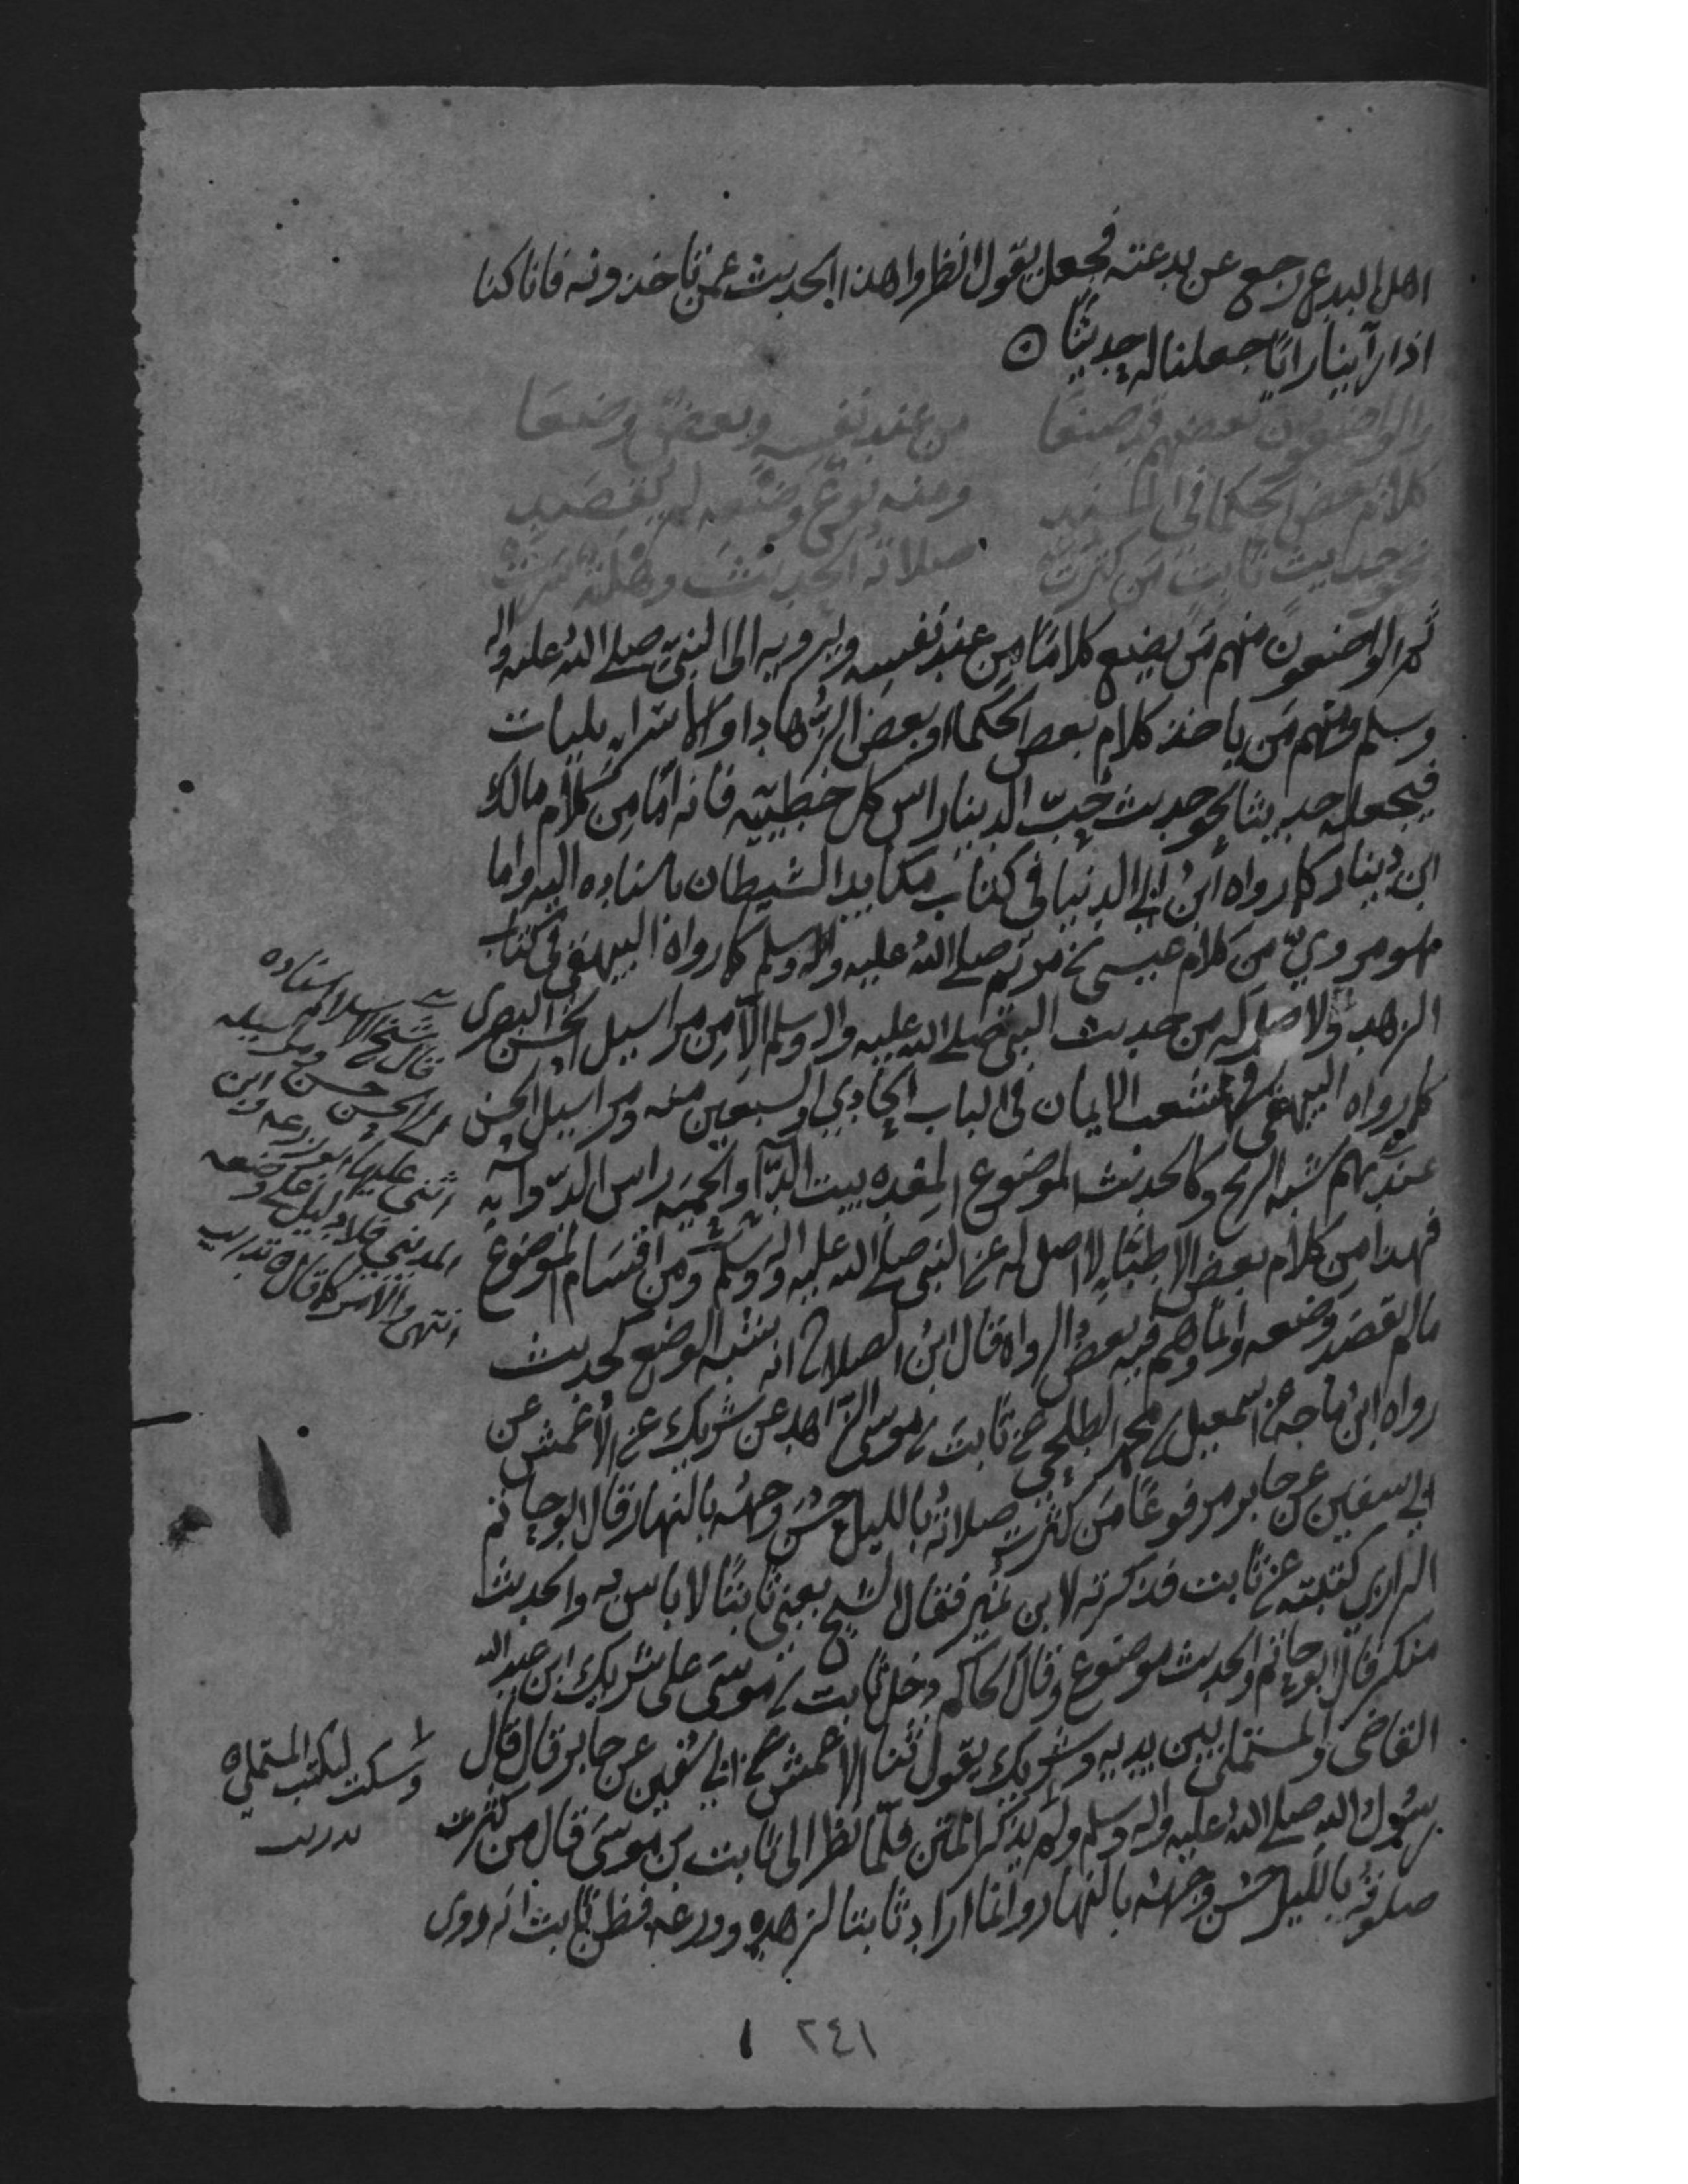 اهل البدع رجع عن بدعته فجعل يقول انظروا هذا الحديث عمن تاخذونه فانا كنا
اذا رأينا رايا جعلنا له حديثا
والواضعون بعضهم قد صنعا من عند نفسه وبعض وضعا
كلام بعض الحكما في المسند ومنه نوع وضعه لم يقصد
نحو حديث ثابت من كثرت صلاته الحديث وهلة سرت
ثم الواضعون منهم من يضع كلاما من عند نفسه ويرويه الى النبي صلى الله عليه واله
وسلم ومنهم من ياخذ كلام بعض الحكماء او بعض الزهاد او الاسرائيليات
فيجعله حديثا نحو حديث حب الدنيا راس كل خطيئة فانه اما من كلام مالك
ابن دينار كما رواه ابن ابي الدنيا في كتاب مكايد الشيطان باسناده اليه واما
هو مروي من كلام عيسى بن مريم صلى الله عليه واله وسلم كما رواه البيهقي في كتاب
الزهد ولا اصل له من حديث النبي صلى الله عليه واله وسلم الا من مراسيل الحسن البصري
كما رواه البيهقي في شعب الايمان في الباب الحادي والسبعين منه ومراسيل الحسن
عندهم شبه الريح وكالحديث الموضوع المعده بيت الدآ والحميه راس الدوآ
فهذا من كلام بعض الاطباء لا اصل له عن النبي صلى الله عليه واله وسلم ومن اقسام الموضوع
مالم يقصد وضعه وانما وهم فيه بعض الرواه قال ابن الصلاح انه شبه الوضع كحديث
رواه ابن ماجه عن اسمعيل بن محمد الطلحي عن ثابت بن موسى الزاهد عن شريك عن الاعمش عن
ابي سفين عن جابر مرفوعا من كثرت صلاته بالليل حسن وجهه بالنهار قال ابو حاتم
الرازي كتبته عن ثابت فذكرته لابن نمير فقال الشيخ يعني ثابتا لا باس به والحديث
منكر قال ابو حاتم والحديث موضوع وقال الحاكم دخل ثابت بن موسى على شريك ابن عبد الله
القاضي والمستملي بين يديه وشريك يقول ثنا الاعمش عن ابي سفين عن جابر قال قال
رسول الله صلى الله عليه واله وسلم ولم يذكر المتن فلما نظر الى ثابت بن موسى قال من كثرت
صلوته بالليل حسن وجهه بالنهار وانما اراد ثابتا لزهده وورعه فظن ثابت انه روى
قال شيخ الاسلام اسناده
الى الحسن حسن ومراسيله
اثنى عليها ابو زرعه وابن
المديني فلا دليل على وضعه
انتهى والامر كما قال تدريب
وسكت ليكتب المستملي
تدريب
٢٤١